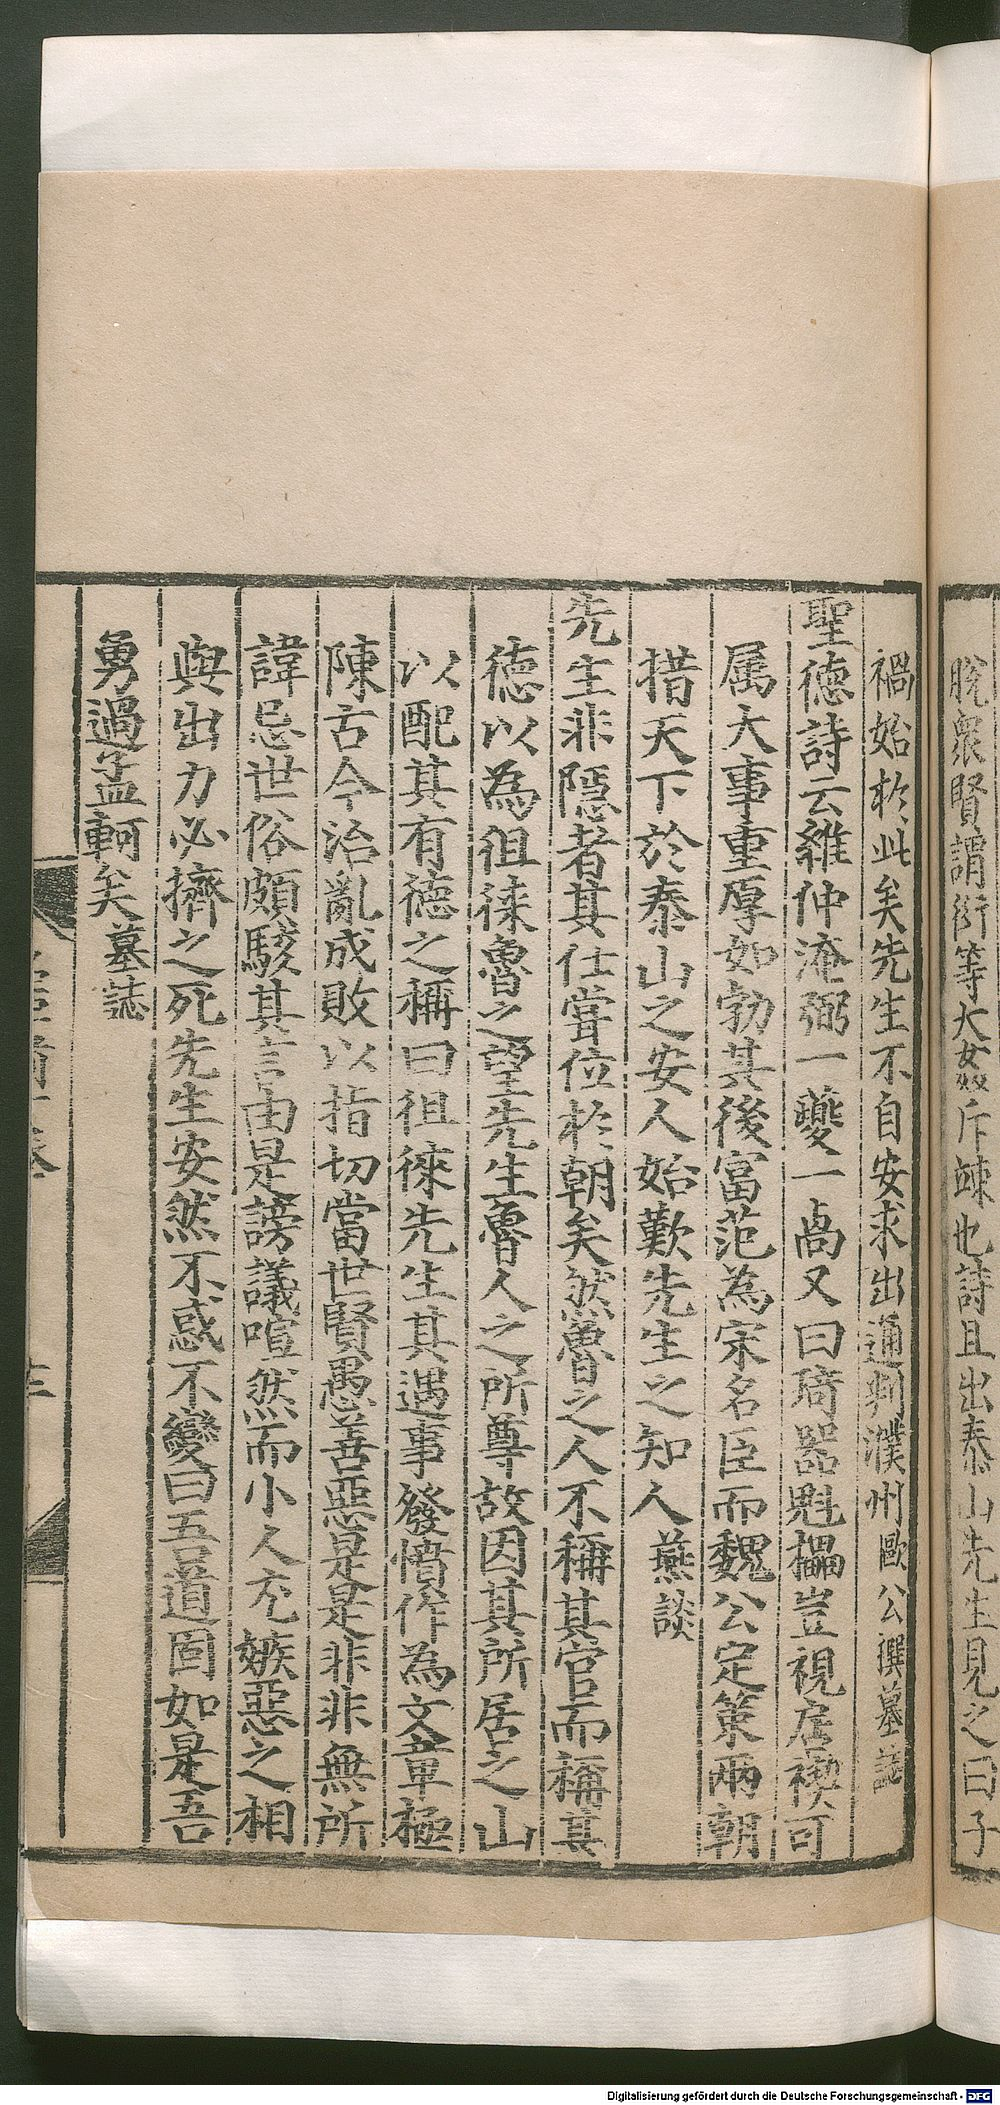 脫衆賢謂衍等大姦斥竦也詩且出泰山先生見之曰子
禍始於此矣先生不自安求出通判濮州歐公撰墓誌
聖德詩云維仲淹弼一夔一卨又曰琦器魁櫑豈視扂楔可
属大事重厚如勃其後富范為宋名臣而魏公定策兩朝
措天下於泰山之安人始歎先生之知人燕談
先生非隱者其仕嘗位於朝矣然魯之人不稱其官而稱其
德以為徂徠魯之望先生魯人之所尊故因其所居之山
以配其有德之稱曰徂徠先生其遇事發憤作為文章極
陳古今治亂成敗以指切當世賢愚善惡是是非非無所
諱忌世俗頗駭其言由是謗議喧然而小人尤嫉惡之相
與出力必擠之死先生安然不惑不變曰吾道固如是吾
勇過孟軻矣墓誌
Digitalisierung gefördert durch die Deutsche Forschungsgemeinschaft - DFG